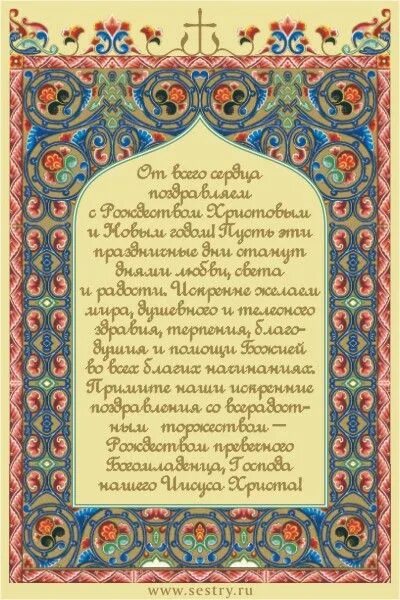 От всего сердца
поздравляем
с Рождеством Христовым
и Новым годом! Пусть эти
праздничные дни станут
днями любви, света
и радости. Искренне желаем
мира, душевного и телесного
здравия, терпения, благо-
душия и помощи Божией
во всех благих начинаниях.
Примите наши искренние
поздравления со всерадост-
ным торжеством —
Рождеством превечного
Богомладенца, Господа
нашего Иисуса Христа!
www.sestry.ru